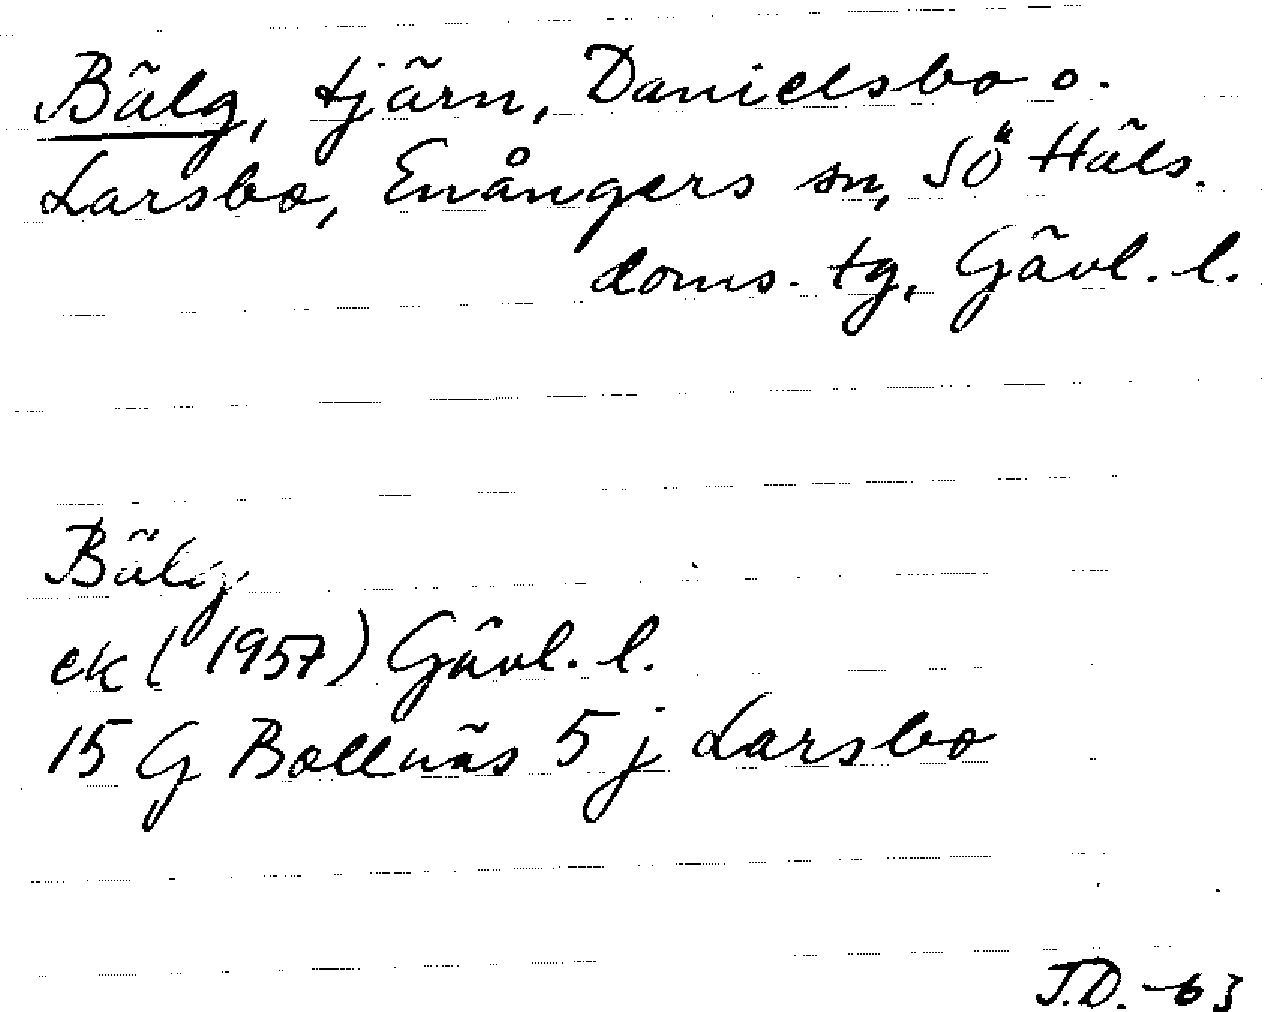 Bälg, tjärn, Danielsbo o.
Larsbo, Enångers sn, Sö Häls.
doms. tg, Gävl. l.
Bälg
ek (1957) Gävl. l.
15 G Bollnäs 5 j Larsbo
J.D. -63